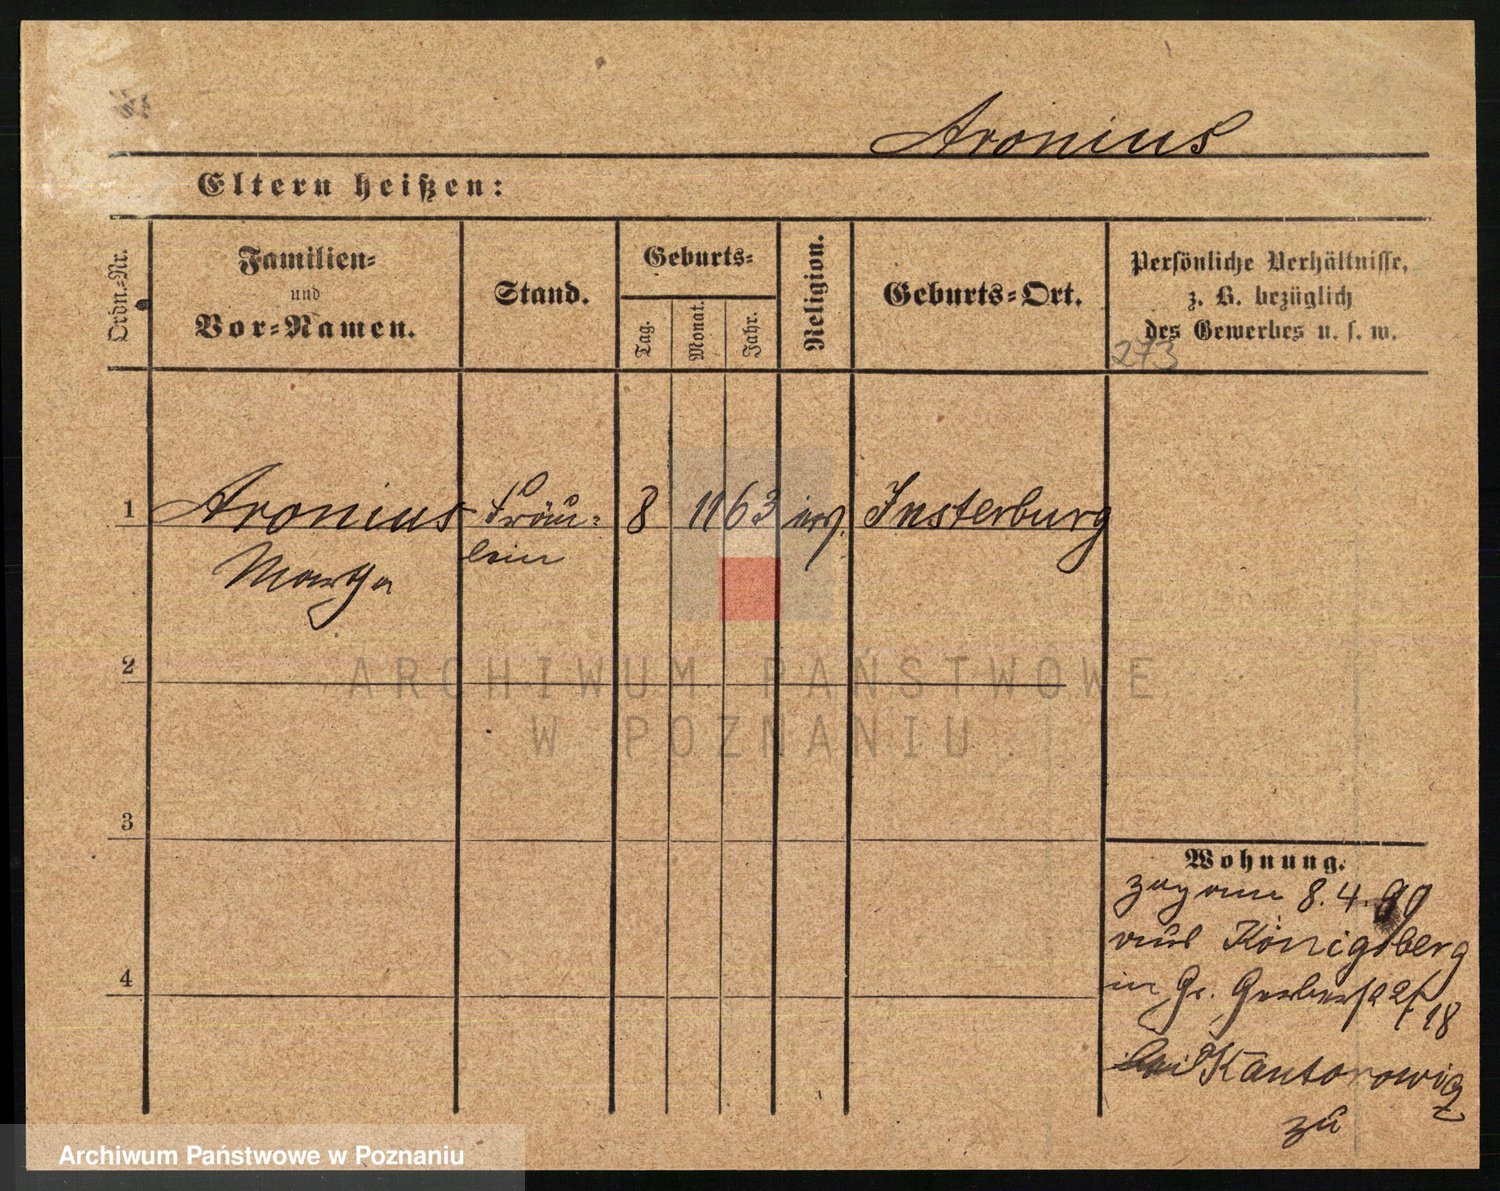 Aronius
Eltern heißen:
Ordn.-Nr.
Familien-
und
Vor-Namen.
Stand.
Geburts-
Tag.
Monat.
Jahr.
Religion.
Geburts-Ort.
Persönliche Verhältnisse,
z. B. bezüglich
des Gewerbes u. s. w.
273
1 Aronius Fräu- 8 11 63 Insterburg
lein
2
3
4
Wohnung.
8.4.90
aus Königsberg
in Gr. Gerberstr 18
bei Kantorowiz
zu
ARCHIWUM PAŃSTWOWE
W POZNANIU
Archiwum Państwowe w Poznaniu